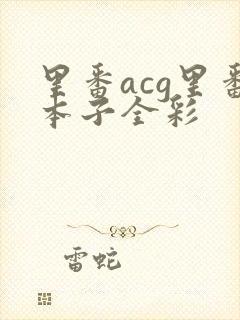 里番acg里番
本子全彩
雷蛇